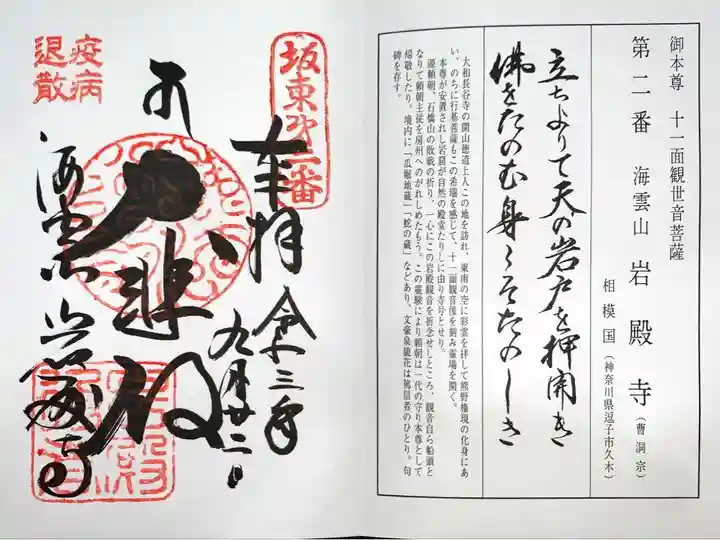 御本尊 十一面観世音菩薩
第二番 海雲山 岩殿寺(曹洞宗)
相模国(神奈川県逗子市久木)
立ちよりて天の岩戸を押開き
佛をたのむ身こそたのしき
大和長谷寺の開山徳道上人この地を訪れ、東南の空に彩雲を拝して熊野権現の化身にあ
い、のちに行基菩薩もこの希瑞を感じて、十一面観音像を刻み霊場を開く。
本尊が安置されし岩窟が自然の殿堂たりしに由り寺号とせり。
源頼朝、石橋山の敗戦の折り、一心にこの岩殿観音を祈念せしところ、観音自ら船頭と
なりて頼朝主従を房州へのがれしめたもう。この霊験により頼朝は一代の守り本尊として
帰敬したり。境内に「瓜堀地蔵」「蛇の蔵」などあり、文豪泉鏡花は篤信者のひとり。句
碑を存す。
坂東第二番
奉拝 令和三年
九月廿二日
大悲殿
海雲山 岩殿寺
疫病
退散